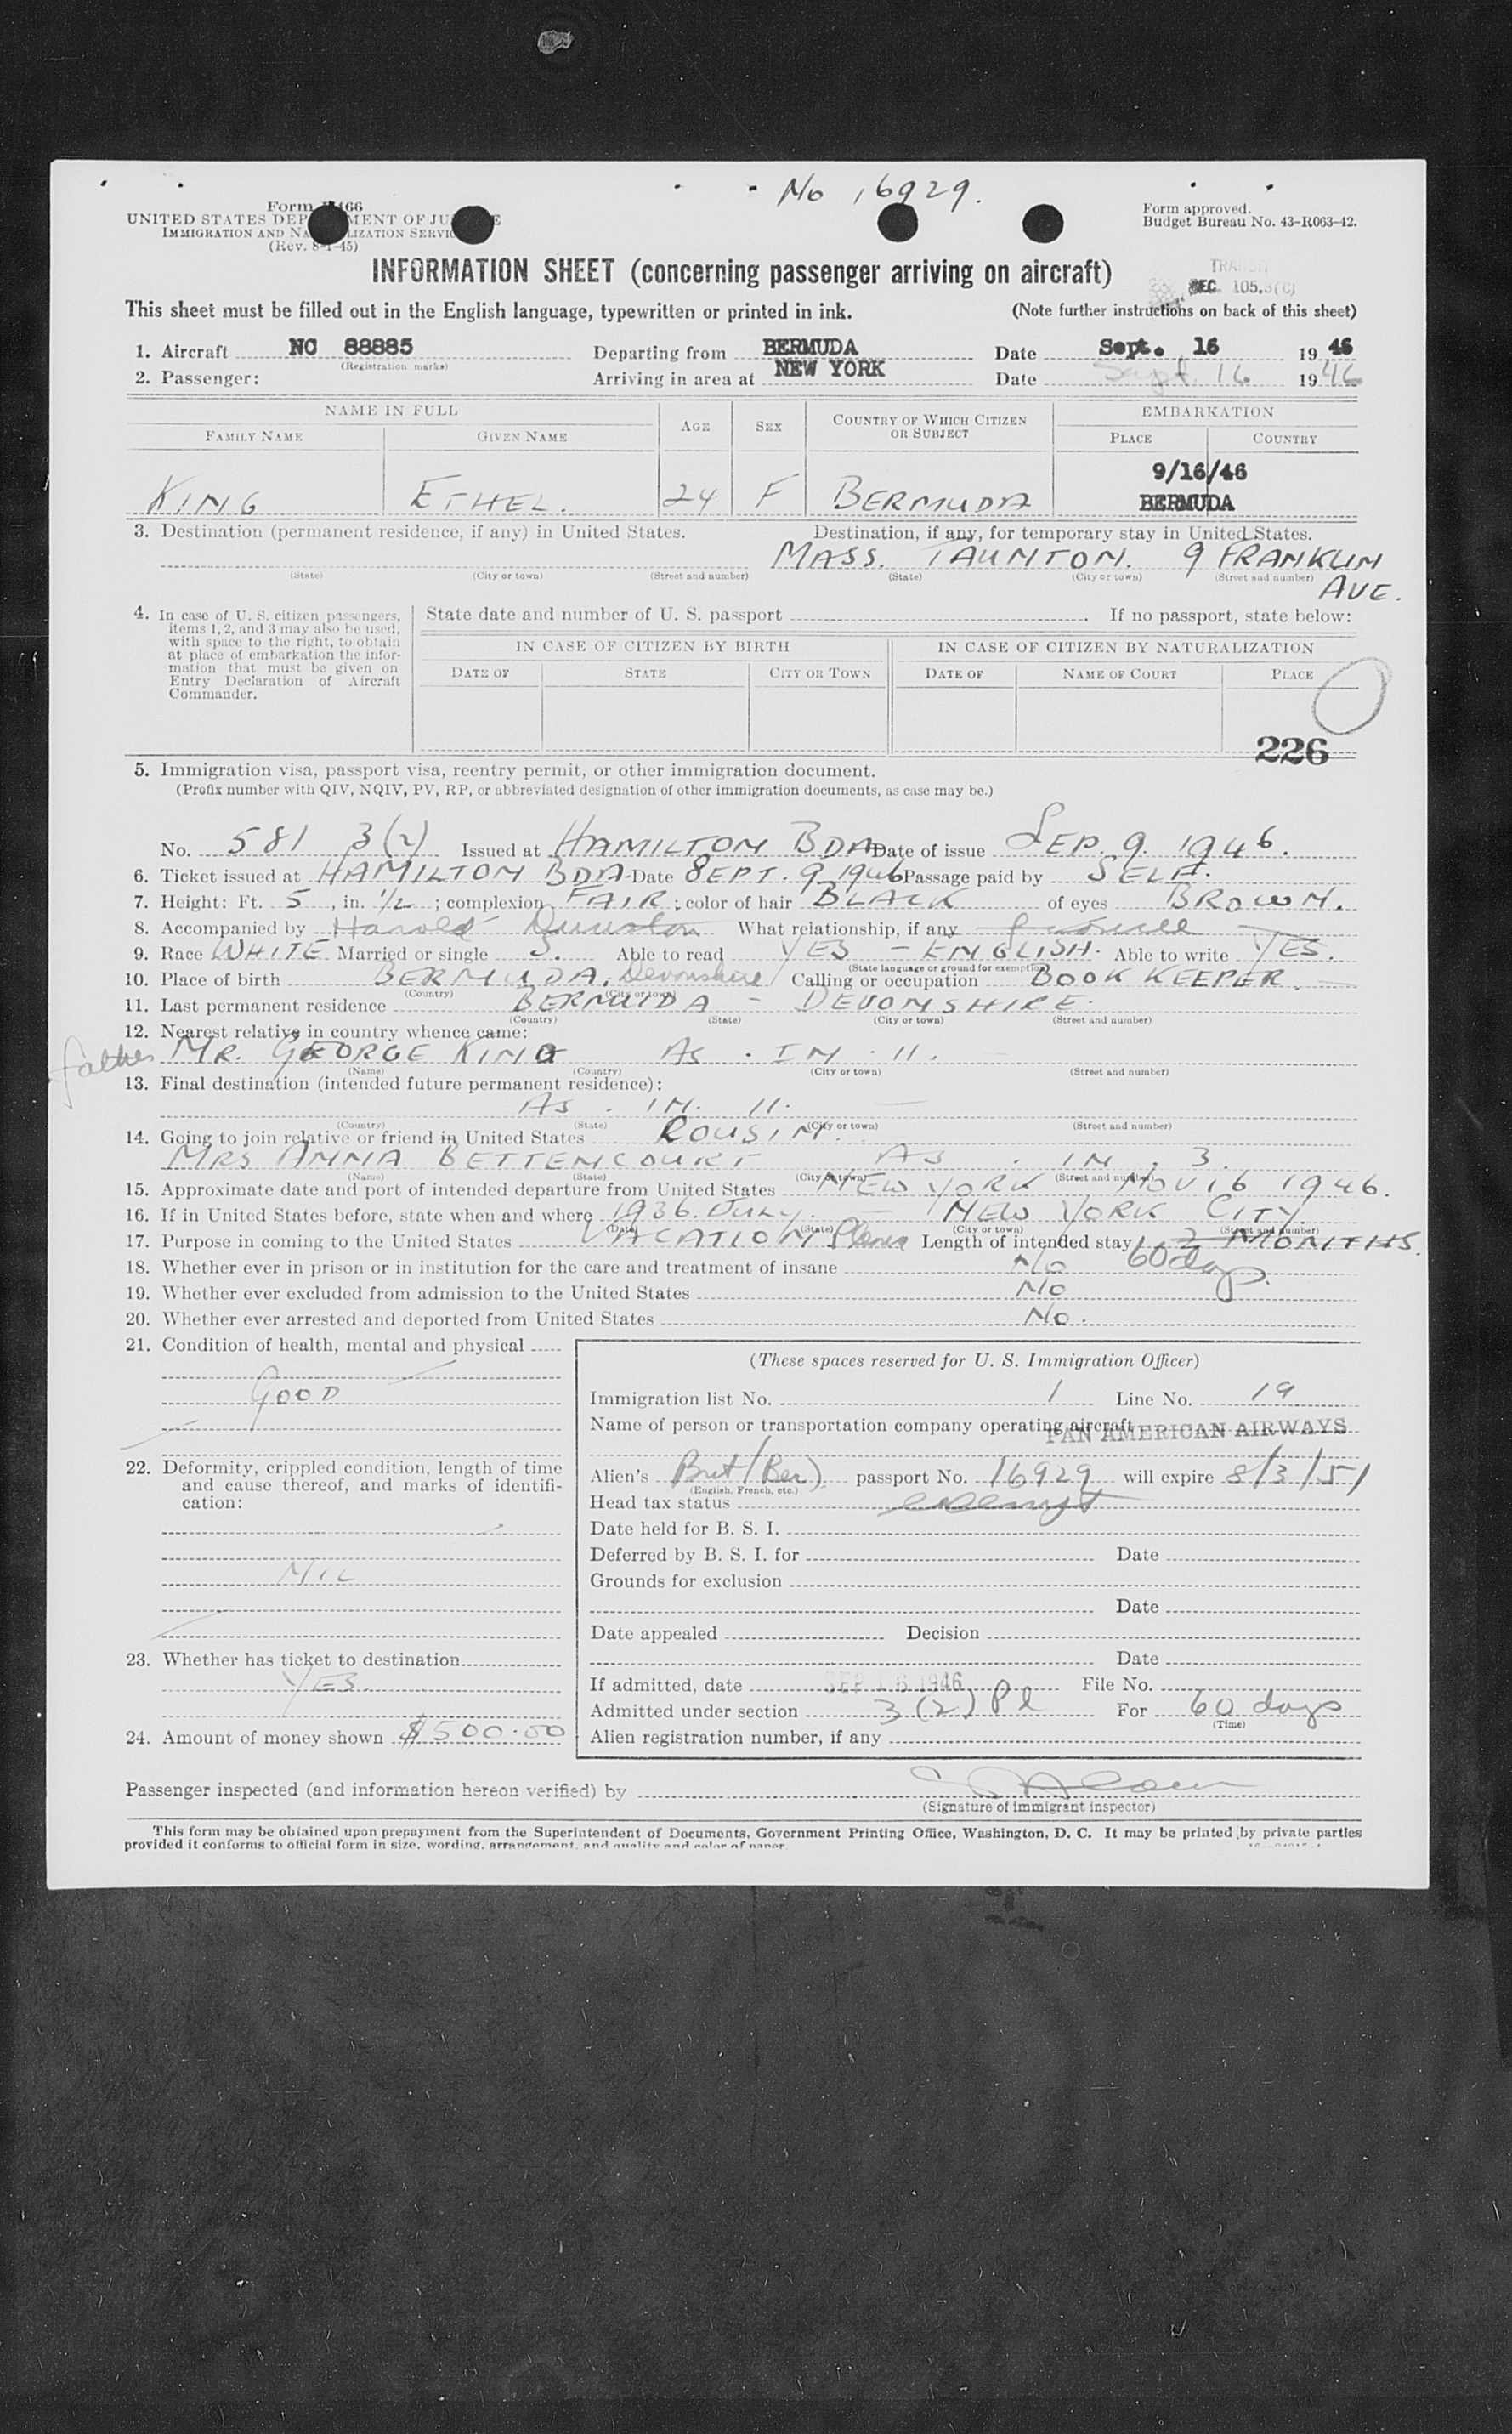 No 16929.
Form I-466
UNITED STATES DEPARTMENT OF JUSTICE
IMMIGRATION AND NATURALIZATION SERVICE
(Rev. 8-1-45)
Form approved.
Budget Bureau No. 43-R063-42.
INFORMATION SHEET (concerning passenger arriving on aircraft)
SEC 105.3(c)
This sheet must be filled out in the English language, typewritten or printed in ink. (Note further instructions on back of this sheet)
1. Aircraft NC 88885 Departing from BERMUDA Date Sept. 16 1946
(Registration marks)
2. Passenger: Arriving in area at NEW YORK Date Sept. 16 1946
NAME IN FULL AGE SEX COUNTRY OF WHICH CITIZEN OR SUBJECT EMBARKATION
FAMILY NAME GIVEN NAME PLACE COUNTRY
9/16/46
KING ETHEL. 24 F BERMUDA BERMUDA
3. Destination (permanent residence, if any) in United States. Destination, if any, for temporary stay in United States.
MASS. TAUNTON. 9 FRANKLIN AVE.
(State) (City or town) (Street and number) (State) (City or town) (Street and number)
4. In case of U. S. citizen passengers, items 1, 2, and 3 may also be used, with space to the right, to obtain at place of embarkation the information that must be given on Entry Declaration of Aircraft Commander.
State date and number of U. S. passport If no passport, state below:
IN CASE OF CITIZEN BY BIRTH IN CASE OF CITIZEN BY NATURALIZATION
DATE OF STATE CITY OR TOWN DATE OF NAME OF COURT PLACE
226
5. Immigration visa, passport visa, reentry permit, or other immigration document.
(Prefix number with QIV, NQIV, PV, RP, or abbreviated designation of other immigration documents, as case may be.)
No. 581 3(2) Issued at HAMILTON BDA Date of issue SEP. 9. 1946.
6. Ticket issued at HAMILTON BDA Date SEPT. 9 1946 Passage paid by SELF.
7. Height: Ft. 5, in. 1/2; complexion FAIR; color of hair BLACK of eyes BROWN.
8. Accompanied by Harold What relationship, if any
9. Race WHITE Married or single S. Able to read YES - ENGLISH. Able to write YES.
(State language or ground for exemption)
10. Place of birth BERMUDA, Devonshire Calling or occupation BOOK KEEPER.
(Country) (City or town)
11. Last permanent residence BERMUDA - DEVONSHIRE.
(Country) (State) (City or town) (Street and number)
12. Nearest relative in country whence came:
father MR. GEORGE KING AS . IN . 11.
(Name) (Country) (City or town) (Street and number)
13. Final destination (intended future permanent residence):
AS . IN. 11.
(Country) (State) (City or town) (Street and number)
14. Going to join relative or friend in United States COUSIN.
MRS ANNA BETTENCOURT AS . IN . 3.
(Name) (State) (City or town) (Street and number)
15. Approximate date and port of intended departure from United States NEW YORK NOV 16 1946.
16. If in United States before, state when and where 1936. JULY. - NEW YORK CITY.
(Date) (State) (City or town) (Street and number)
17. Purpose in coming to the United States VACATION Length of intended stay 2 MONTHS.
60 days.
18. Whether ever in prison or in institution for the care and treatment of insane No
19. Whether ever excluded from admission to the United States No
20. Whether ever arrested and deported from United States No.
21. Condition of health, mental and physical
GOOD
22. Deformity, crippled condition, length of time and cause thereof, and marks of identification:
NIL
23. Whether has ticket to destination
YES
24. Amount of money shown $500.00
(These spaces reserved for U. S. Immigration Officer)
Immigration list No. 1 Line No. 19
Name of person or transportation company operating aircraft PAN AMERICAN AIRWAYS
Alien's Brit (Ber) passport No. 16929 will expire 8/3/51
(English, French, etc.)
Head tax status exempt
Date held for B. S. I.
Deferred by B. S. I. for Date
Grounds for exclusion
Date
Date appealed Decision
Date
If admitted, date SEP 16 1946 File No.
Admitted under section 3(2) Pl For 60 days
(Time)
Alien registration number, if any
Passenger inspected (and information hereon verified) by
(Signature of immigrant inspector)
This form may be obtained upon prepayment from the Superintendent of Documents, Government Printing Office, Washington, D. C. It may be printed by private parties
provided it conforms to official form in size, wording, arrangement, and quality and color of paper.